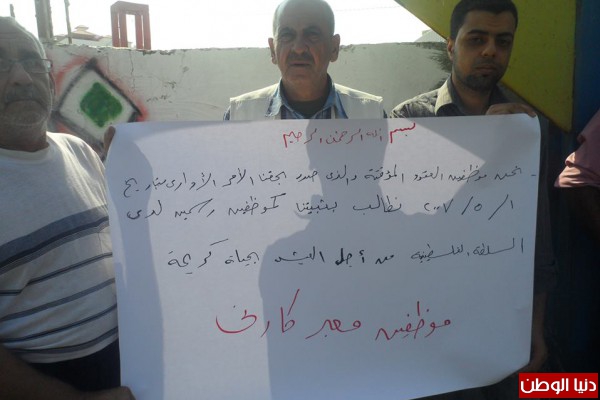 بسم الله الرحمن الرحيم
- نحن موظفين العقود المؤقتة والذي صدر بحقنا الأمر الأداري بتاريخ
٢٠٠٧/٥/١ نطالب بتثبيتنا كموظفين رسمين لدى
السلطة الفلسطينية من أجل العيش بحياة كريمة
موظفين معبر كارني
دنيا الوطن